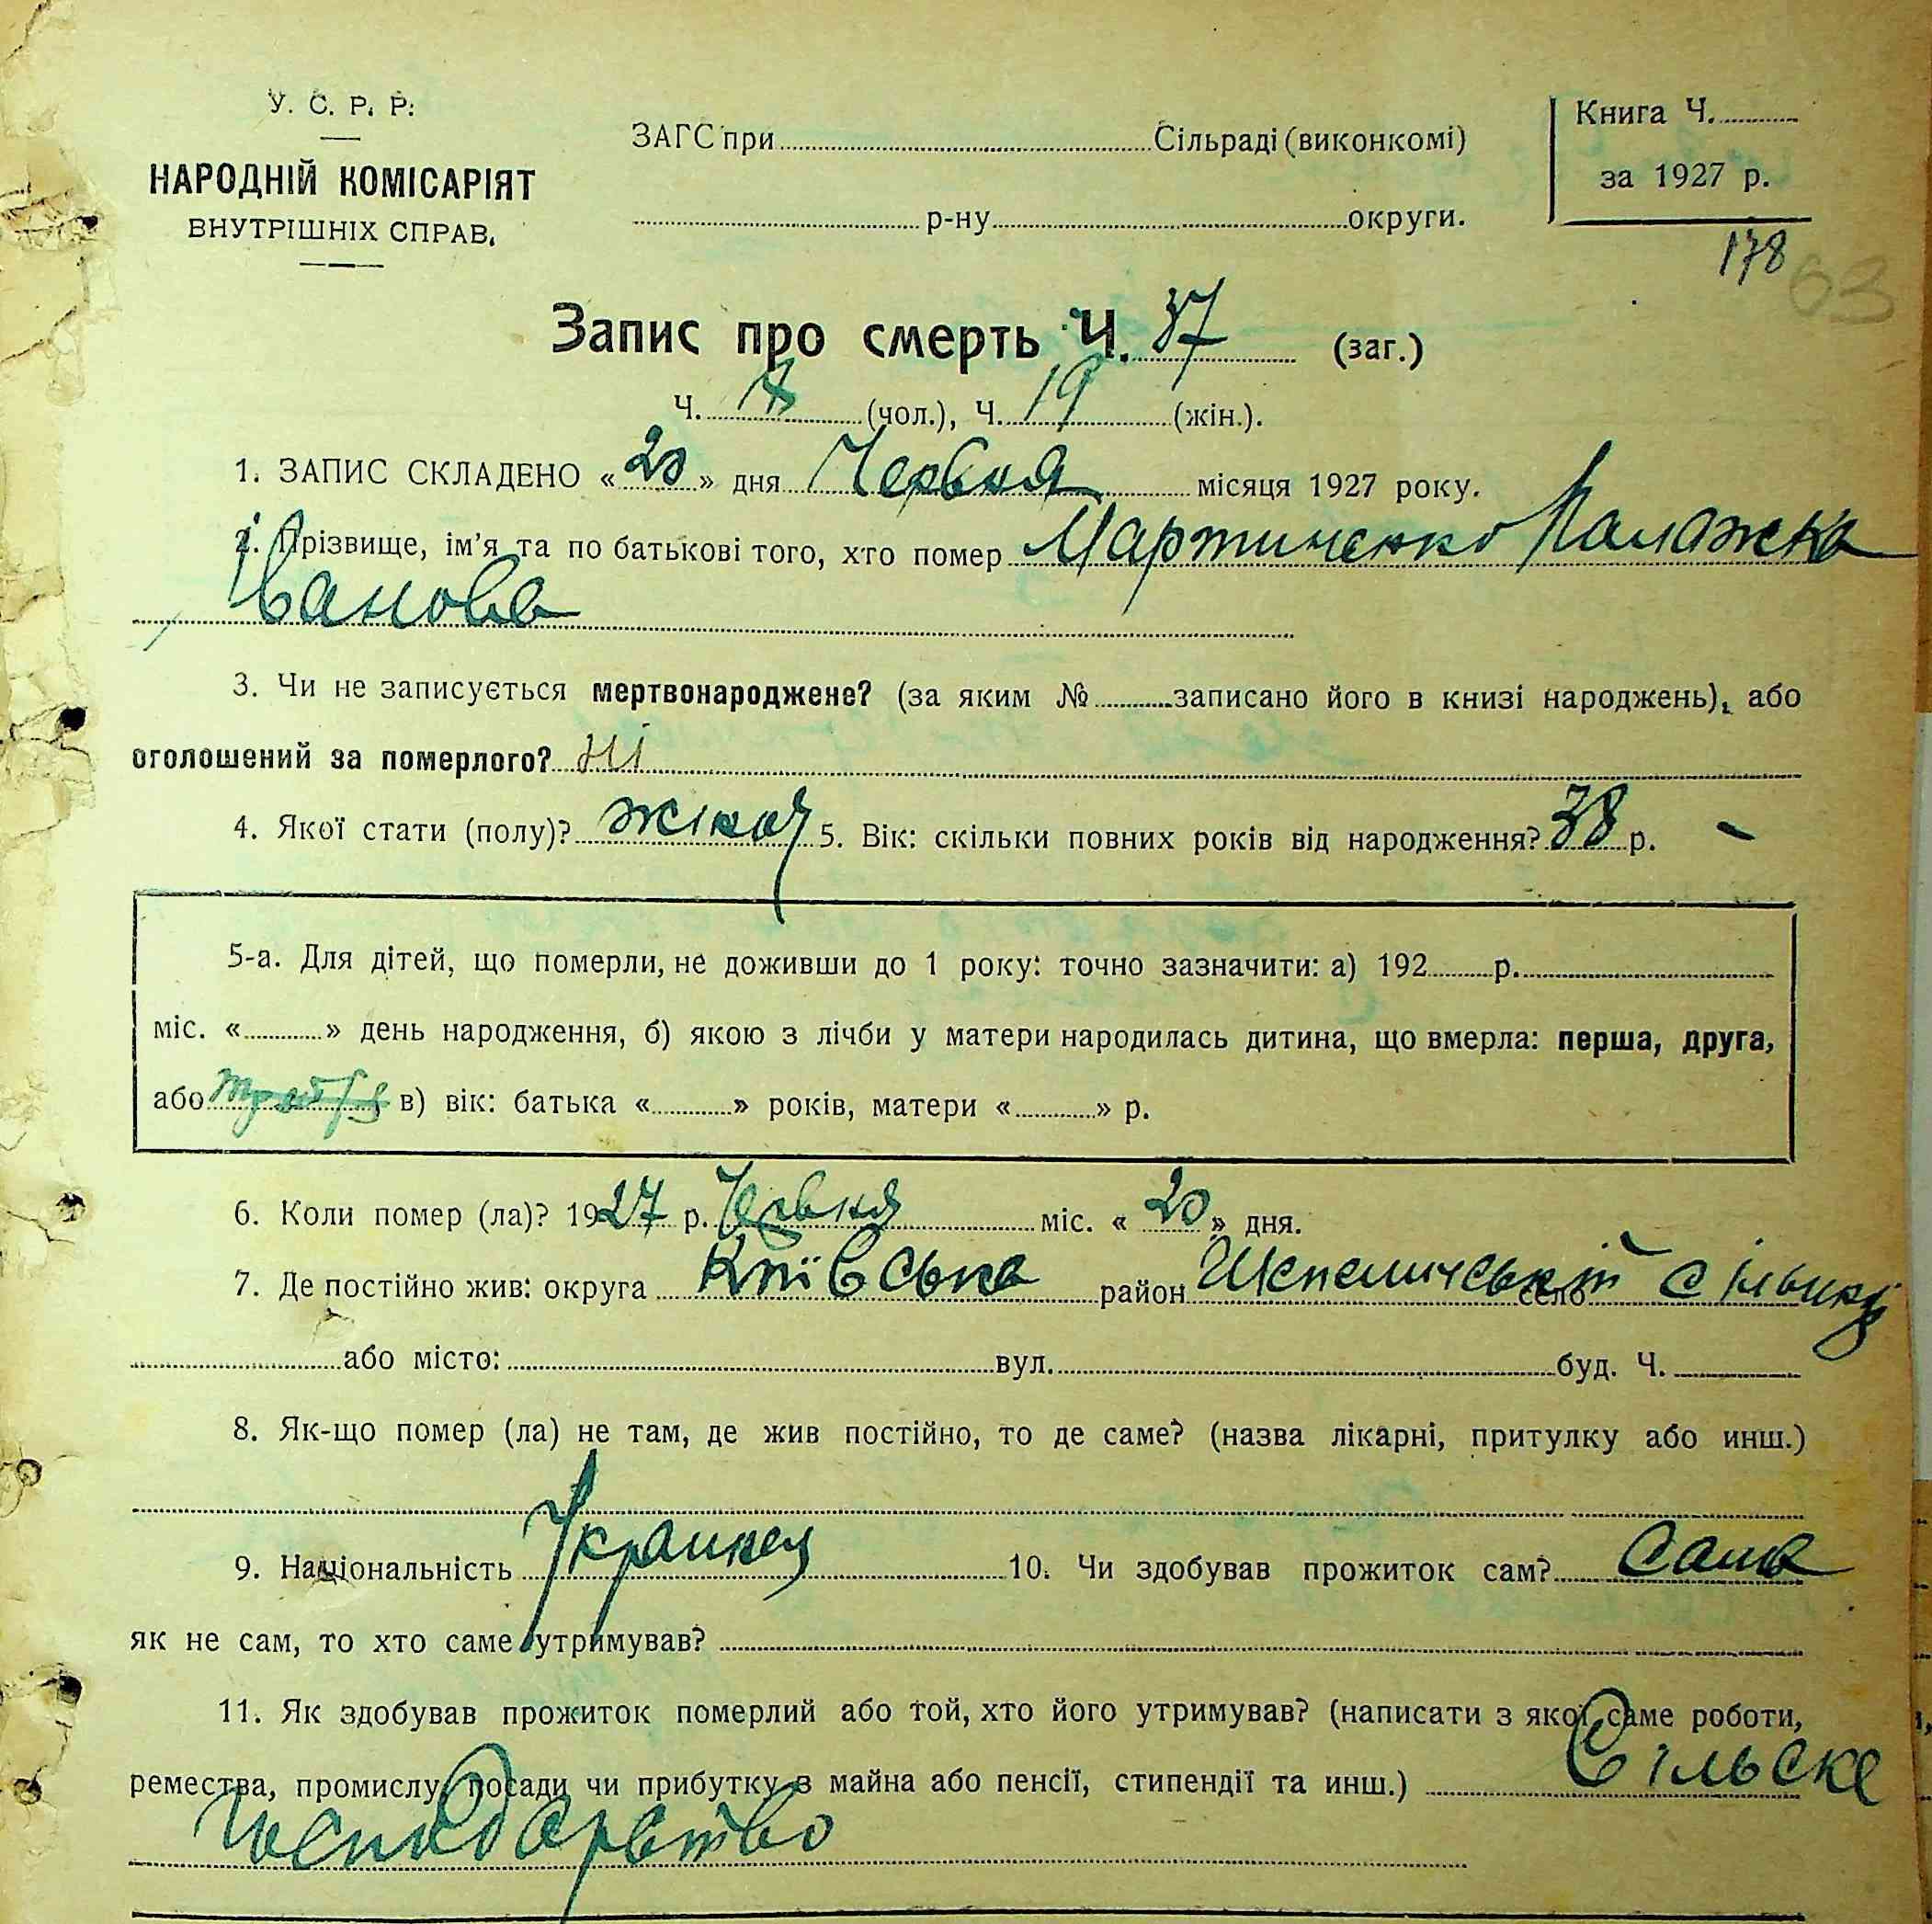 У. С. Р. Р.
НАРОДНІЙ КОМІСАРІЯТ
ВНУТРІШНІХ СПРАВ.
ЗАГС при Сільраді (виконкомі)
р-ну округи.
Книга Ч.
за 1927 р.
178
63
Запис про смерть Ч. 37 (заг.)
Ч. (чол.), Ч. 19 (жін.).
1. ЗАПИС СКЛАДЕНО «20» дня Червня місяця 1927 року.
2. Прізвище, ім'я та по батькові того, хто помер Мартиненко Палажка
Іванова
3. Чи не записується мертвонароджене? (за яким № записано його в книзі народжень), або
оголошений за померлого? Ні
4. Якої стати (полу)? жіноч 5. Вік: скільки повних років від народження? 38 р.
5-а. Для дітей, що померли, не доживши до 1 року: точно зазначити: а) 192 р.
міс. « » день народження, б) якою з лічби у матери народилась дитина, що вмерла: перша, друга,
або в) вік: батька « » років, матери « » р.
6. Коли помер (ла)? 1927 р. Червня міс. «20» дня.
7. Де постійно жив: округа Київська район село
або місто: вул. буд. Ч.
8. Як-що помер (ла) не там, де жив постійно, то де саме? (назва лікарні, притулку або инш.)
9. Національність Украинец 10. Чи здобував прожиток сам? Сама
як не сам, то хто саме утримував?
11. Як здобував прожиток померлий або той, хто його утримував? (написати з якої саме роботи,
ремества, промислу, посади чи прибутку з майна або пенсії, стипендії та инш.) Сільске
господарство